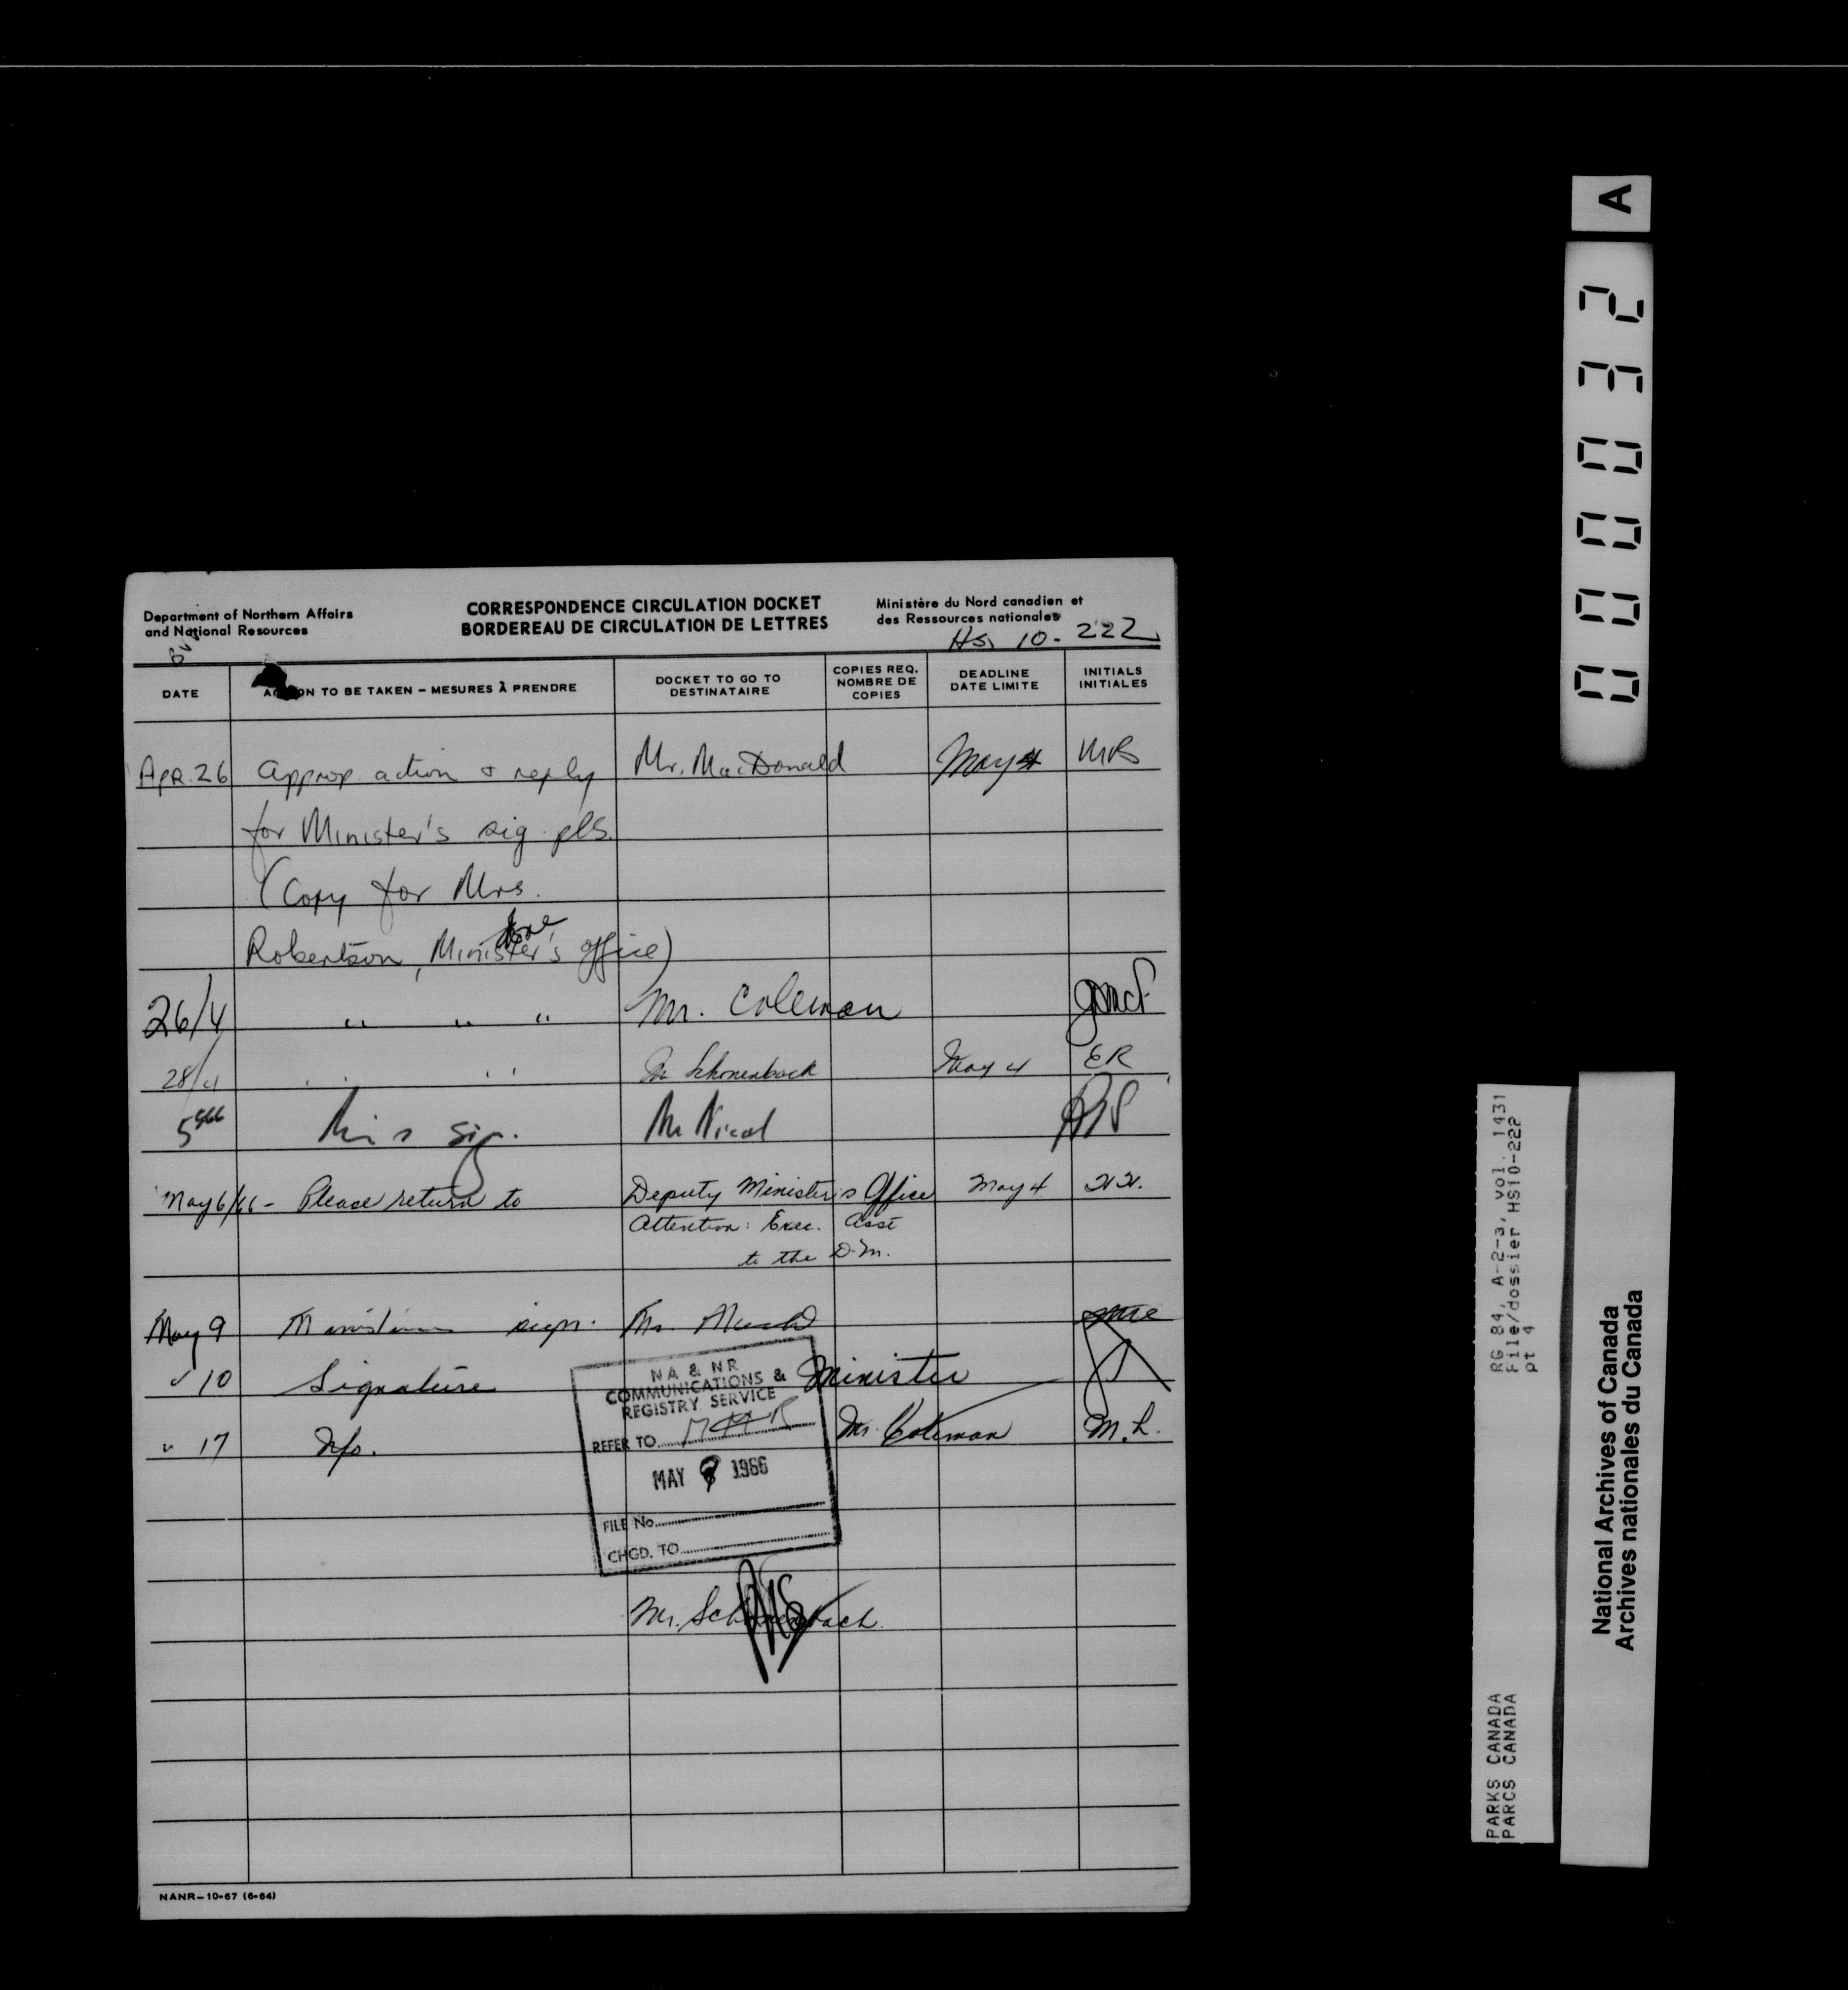 Department of Northern Affairs
and National Resources
CORRESPONDENCE CIRCULATION DOCKET
BORDEREAU DE CIRCULATION DE LETTRES
Ministère du Nord canadien et
des Ressources nationales
HS. 10-222
DATE
ACTION TO BE TAKEN – MESURES À PRENDRE
DOCKET TO GO TO
DESTINATAIRE
COPIES REQ.
NOMBRE DE
COPIES
DEADLINE
DATE LIMITE
INITIALS
INITIALES
Apr. 26 Approp. action & reply Mr. MacDonald May 4 MR
for Minister's sig. pls.
(Copy for Mrs.
done
Robertson, Minister's office)
26/4 " " " Mr. Coleman
28/4 Schonenbach May 4 ER
5 sig. Mr Nicol
May 6/66 - Please return to Deputy Minister's Office May 4
Attention: Exec. Asst
to the D.M.
May 9 sign. Mr.
" 10 Signature Minister
" 17 Info. Mr. Coleman M.L.
NA & NR
COMMUNICATIONS &
REGISTRY SERVICE
REFER TO
MAY 9 1966
FILE No.
CHGD. TO
Mr. Schonenbach
NANR–10-67 (6-64)
A
000032
RG 84, A-2-3, vol. 1431
File/dossier HS10-222
pt 4
PARKS CANADA
PARCS CANADA
National Archives of Canada
Archives nationales du Canada